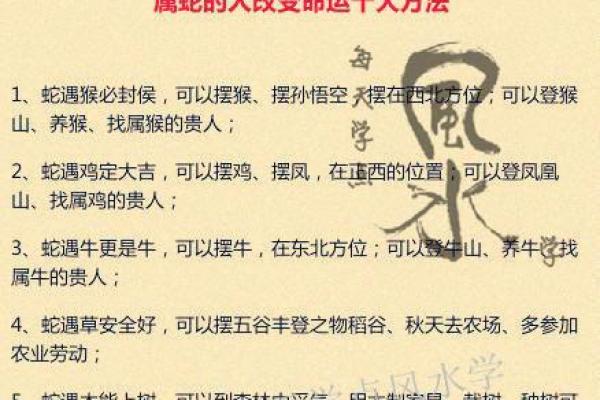 属蛇的人改变命运十大方法
每天学点
風水
学
1、蛇遇猴必封侯，可以摆猴、摆孙悟空，摆在西北方位；可以登猴
山、养猴、找属猴的贵人；
2、蛇遇鸡定大吉，可以摆鸡、摆凤，在正西的位置；可以登凤凰
山、找属鸡的贵人；
3、蛇遇牛更是牛，可以摆牛，在东北方位；可以登牛山、养牛、找
属牛的贵人；
4、蛇遇草安全好，可以摆五谷丰登之物稻谷、秋天去农场、多参加
农业劳动；
学点风水学
5、蛇遇木能上树，可以到森林中采信、用木制家具、栽树、种树可